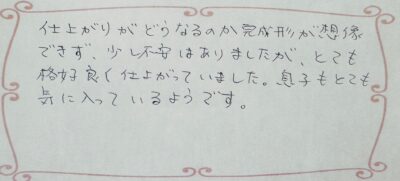 仕上がりがどうなるのか完成形が想像
できず、少し不安はありましたが、とても
格好良く仕上がっていました。息子もとても
気に入っているようです。